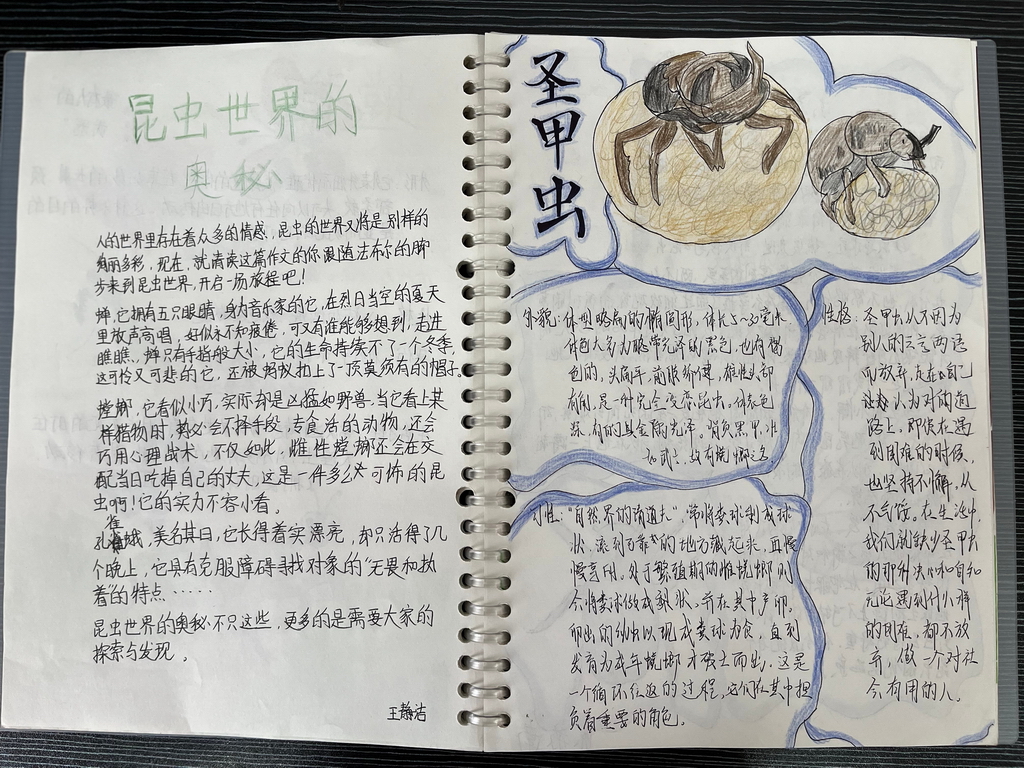 昆虫世界的
奥秘
人的世界里存在着众多的情感，昆虫的世界又将是别样的
绚丽多彩，现在，就请读这篇作文的你跟随法布尔的脚
步来到昆虫世界，开启一场旅程吧！
蝉，它拥有五只眼睛，身为音乐家的它，在烈日当空的夏天
里放声高唱，好似永不知疲倦，可又有谁能够想到，走进
瞧瞧，蝉只有手指般大小，它的生命持续不了一个冬季，
这可怜又可悲的它，还被蚂蚁扣上了一顶莫须有的帽子。
螳螂，它看似小巧，实际却是凶猛如野兽，当它看上某
样猎物时，其必会不择手段，专食活的动物，还会
巧用心理战术，不仅如此，雌性螳螂还会在交
配当日吃掉自己的丈夫，这是一件多么可怖的昆
虫啊！它的实力不容小看。
孔雀蛾，美名其曰，它长得着实漂亮，却只活得了几
个晚上，它具有克服障碍寻找对象的“无畏和执
着”的特点……
昆虫世界的奥秘不只这些，更多的是需要大家的
探索与发现。
王静洁
圣甲虫
外貌：体型略扁的椭圆形，体长5~30毫米
体色大多为略带光泽的黑色，也有褐
色的，头扁平，前肢
有角，是一种完全变态昆虫，体表色
深，有的具金属光泽。背负黑甲，
故有蜣螂之
习性：“自然界的清道夫”，常将粪球制成球
状，滚到可靠的地方藏起来，再慢
慢享用。处于繁殖期的雌蜣螂则
会将粪球做成梨状，并在其中产卵。
卵出的幼虫以现成粪球为食，直到
发育为成年蜣螂才破土而出，这是
一个循环往返的过程，它们在其中担
负着重要的角色。
性格：圣甲虫从不因为
别人的三言两语
而放弃，走在自己
认为对的道
路上。即使在遇
到困难的时候，
也坚持不懈，从
不气馁。在生活中，
我们就缺少圣甲虫
的那种决心和自知
无论遇到什么样
的困难，都不放
弃，做一个对社
会有用的人。